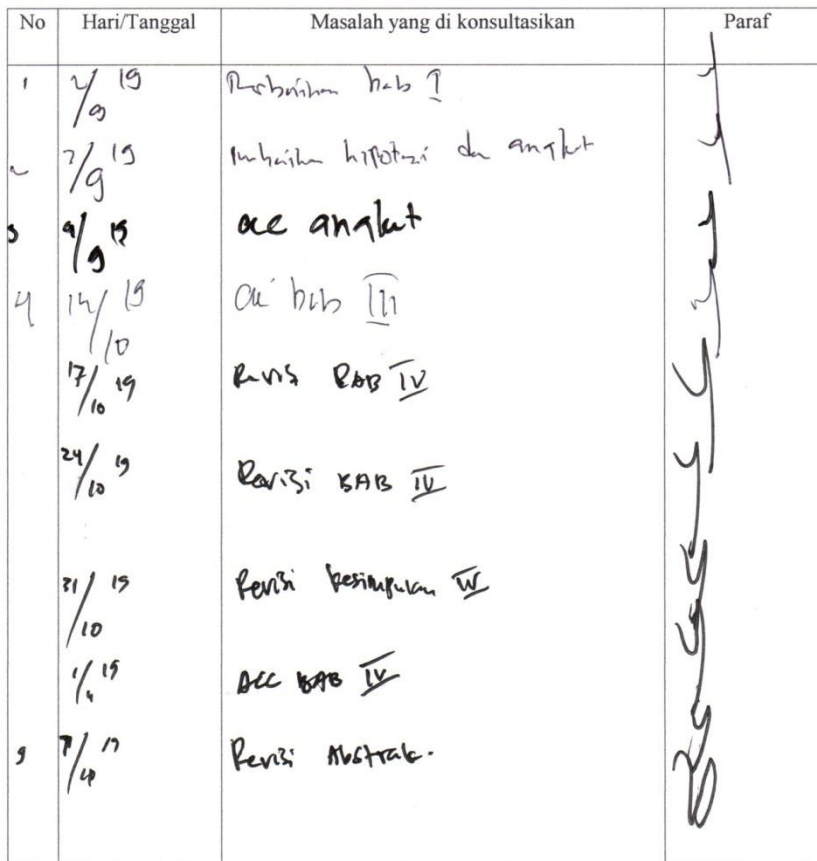 No Hari/Tanggal Masalah yang di konsultasikan Paraf
1 2/9 19 Perbaikan bab I
2 7/9 19 hipotesi dan angket
3 9/9 19 acc angket
4 14/10 19 acc bab III
17/10 19 Revisi BAB IV
24/10 19 Revisi BAB IV
31/10 19 Revisi kesimpulan IV
19 ACC BAB IV
9 19 Revisi Abstrak.